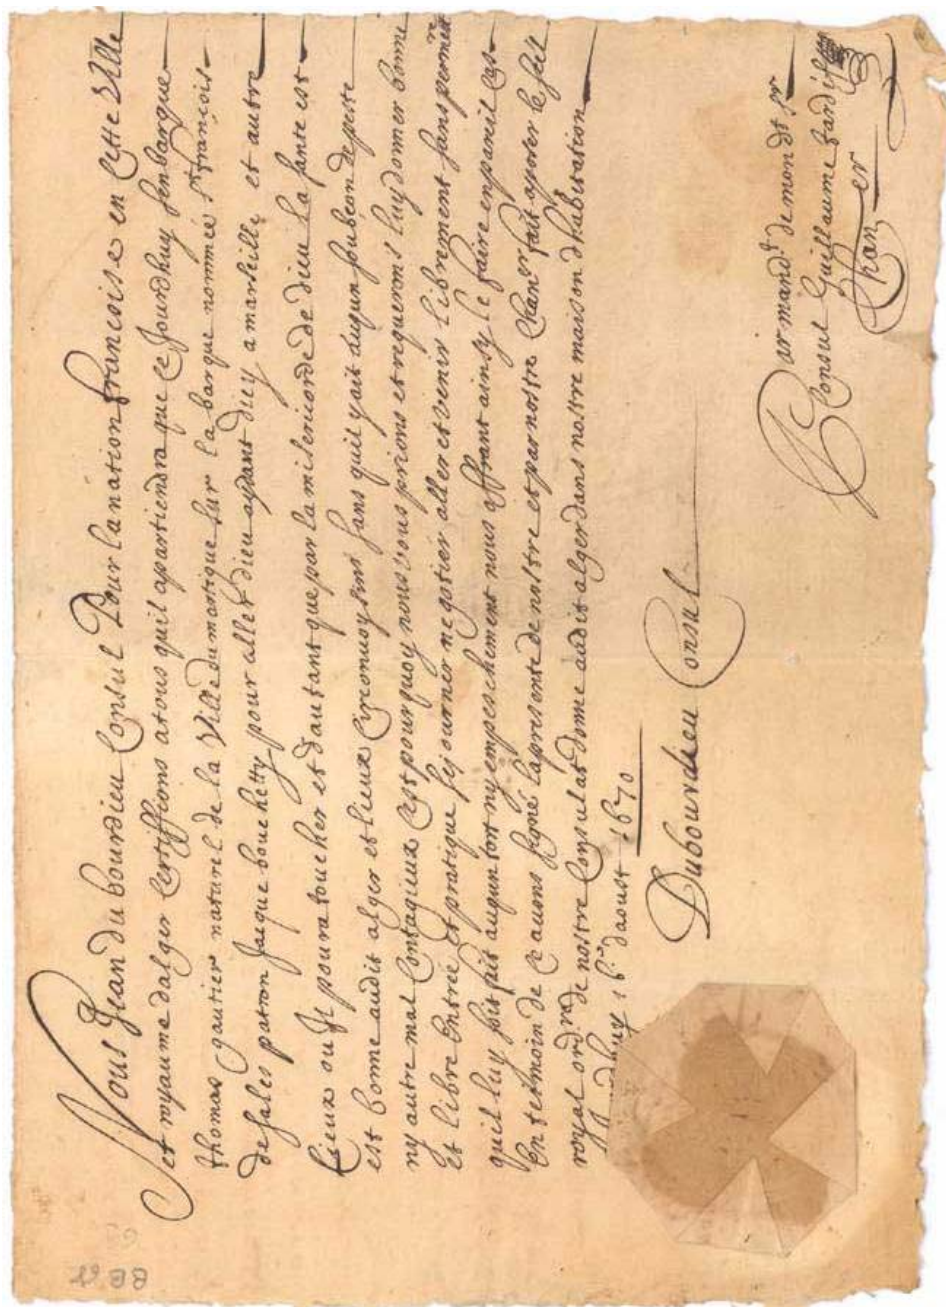 Nous Jean du bourdieu Consul Pour la nation francoise en Cette Ville
et royaume dalger Certiffions atous quil apartiendra que Ce Jourdhuy senbarque
thomas gautier naturel de la Ville du martigue sur la barque nommée St françois
de sales patron Jacque bouchetty pour aller dieu aydant diey a marseille et autre
Lieux ou Jl poura toucher et dautant que par la misericorde de dieu la sante est
est bonne audit alger et lieux Circonuoysins sans quil y ait augun soubcon de peste
ny autre mal Contagieux Cest pourquoy nous vous prions et requerons luy donner bonne
et libre Entrée et pratique sejourner negotier aller et venir librement sans permettre
quil luy soit fait augun tort ny empeschement nous offrant ainsy le faire en pareil Cas
En tesmoin de Ce auons signé la presente de nostre et par nostre Chaner fait aposer le seel
royal ordre de nostre Consulat donné audit alger dans nostre maison dhabitation
Jourdhuy 16 daoust 1670
Dubourdieu Consul
Par mandt de mondt Sr
Consul Guillaume tardif
Chaner
BB 68